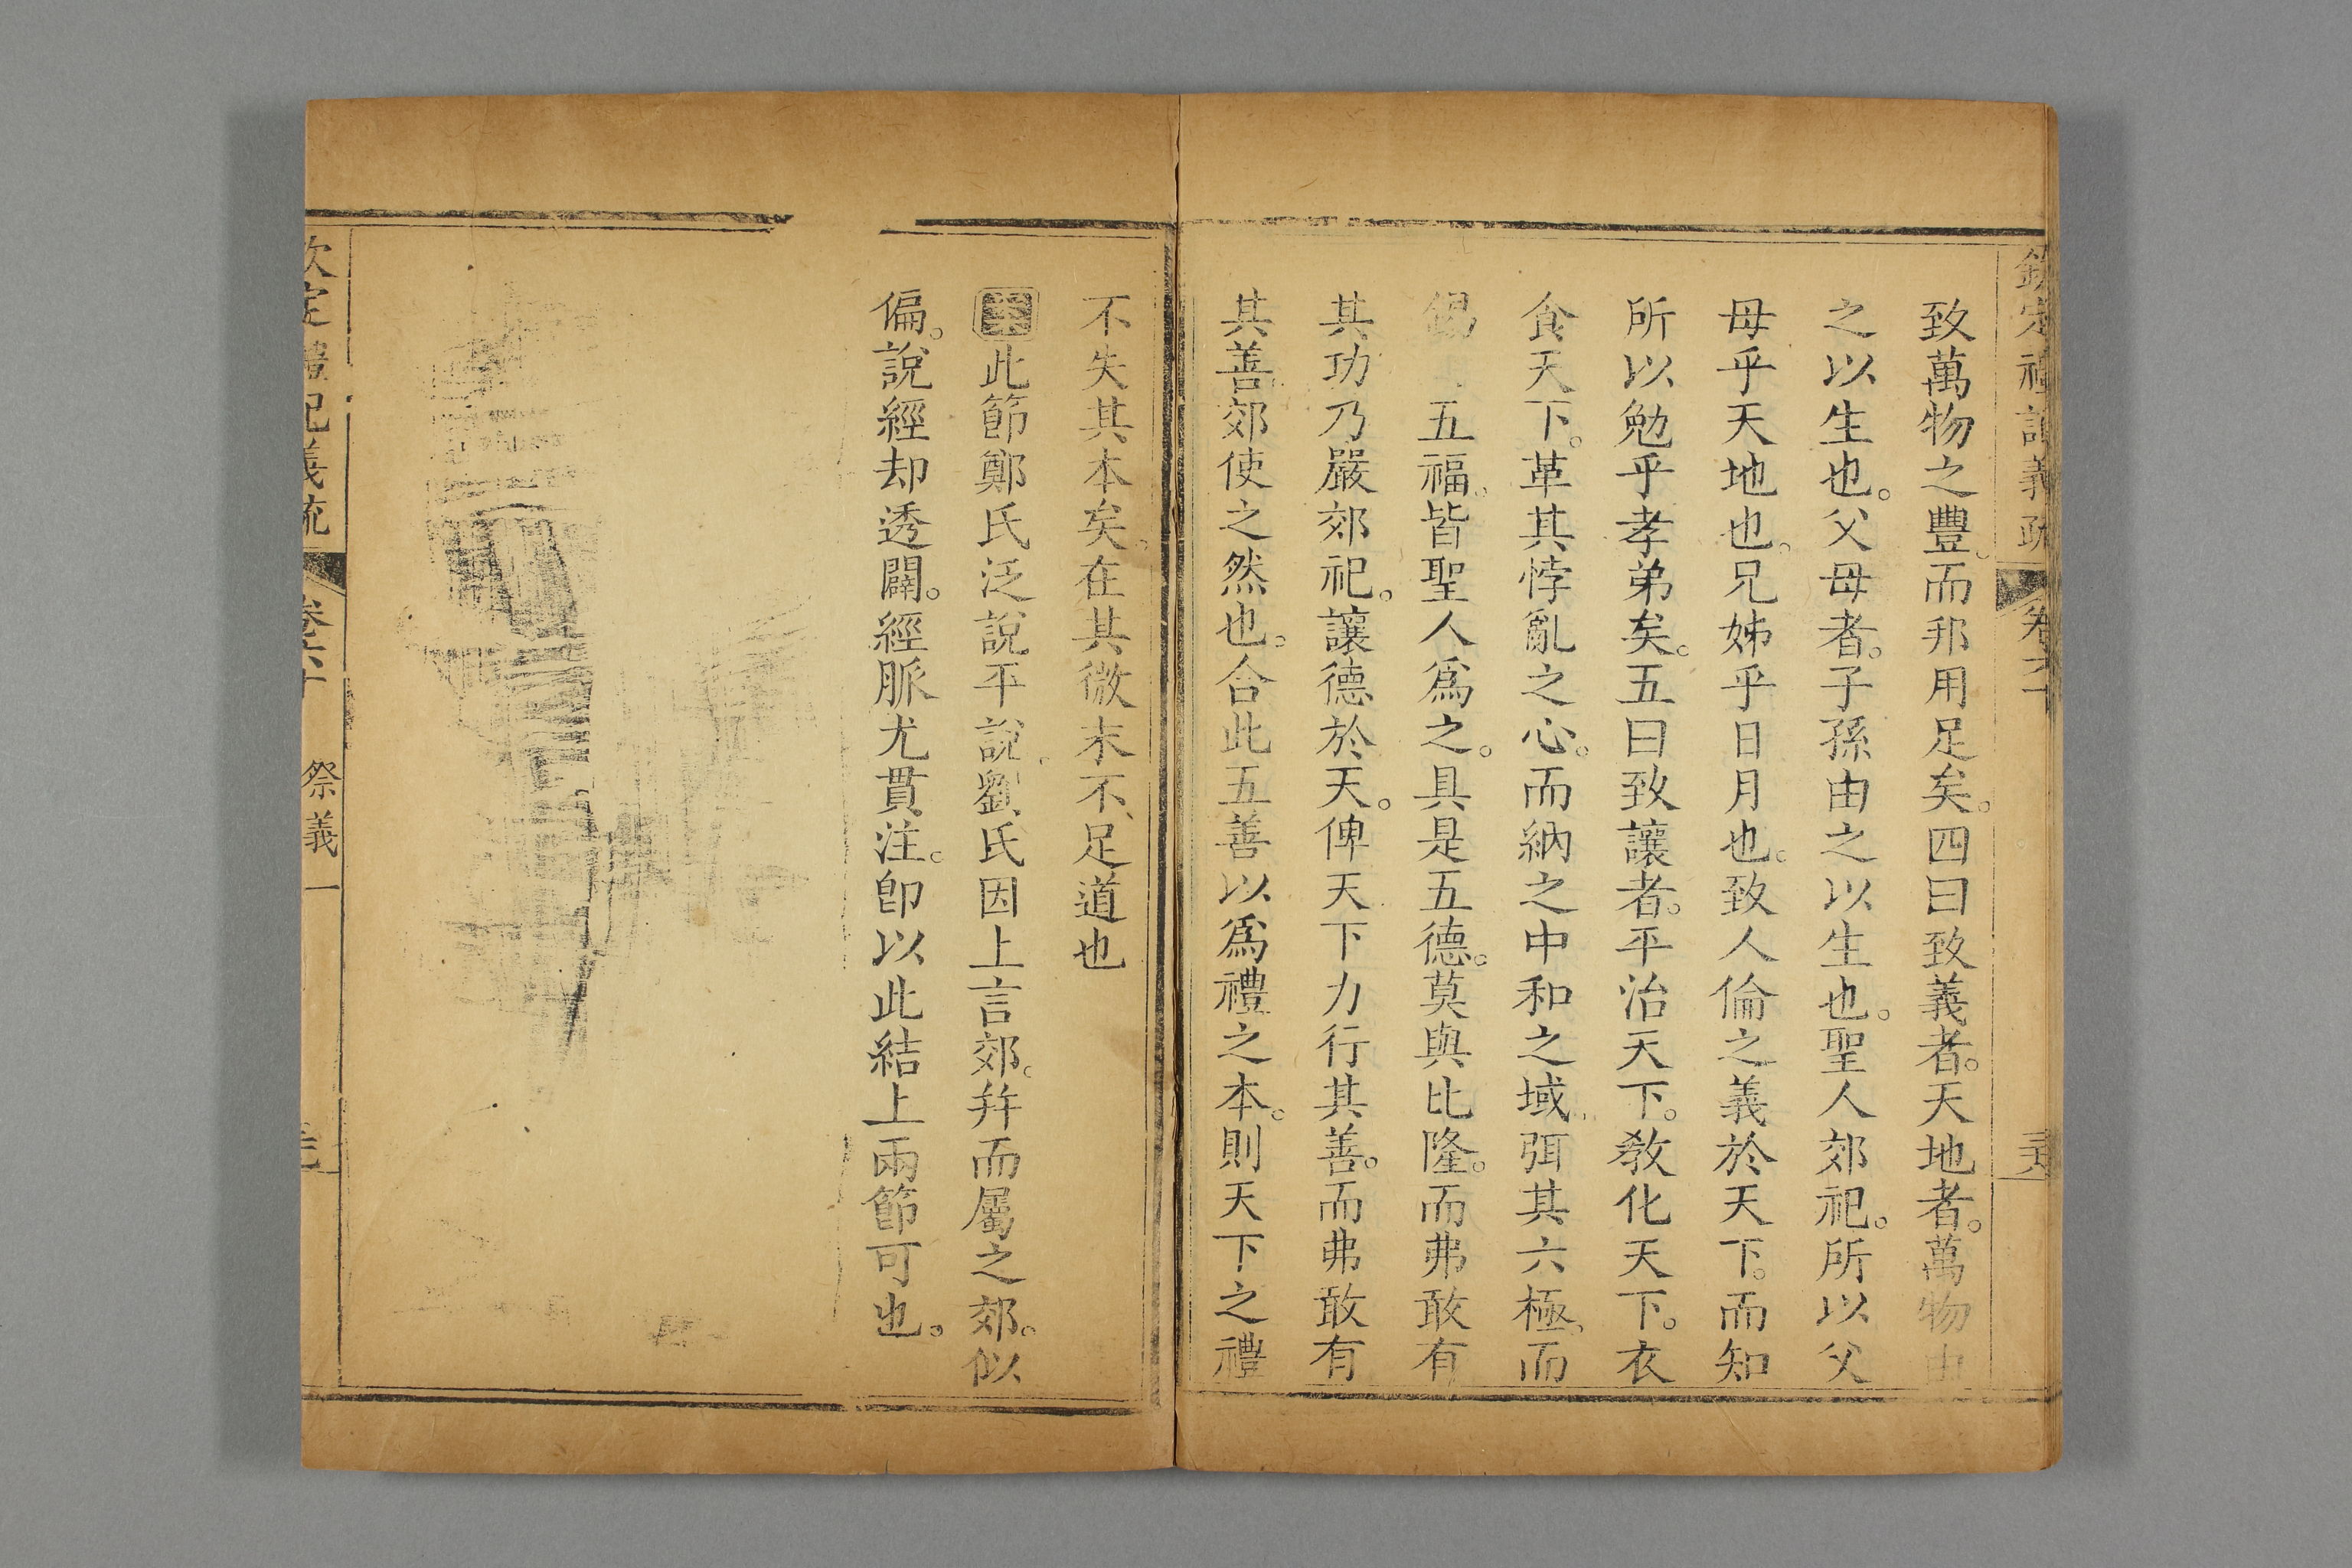 欽定禮記義疏 卷六十
致萬物之豐。而邦用足矣。四曰致義者。天地者。萬物由
之以生也。父母者。子孫由之以生也。聖人郊祀。所以父
母乎天地也。兄姊乎日月也。致人倫之義於天下。而知
所以勉乎孝弟矣。五曰致讓者。平治天下。敎化天下。衣
食天下。革其悖亂之心。而納之中和之域。弭其六極。而
錫 五福。皆聖人爲之。具是五德。莫與比隆。而弗敢有
其功乃嚴郊祀。讓德於天。俾天下力行其善。而弗敢有
其善。郊使之然也。合此五善以爲禮之本。則天下之禮
不失其本矣。在其微末不足道也
此節鄭氏泛說平說。劉氏因上言郊。幷而屬之郊。似
偏。說經却透闢。經脈尤貫注。卽以此結上兩節可也。
欽定禮記義疏 卷六十 祭義一